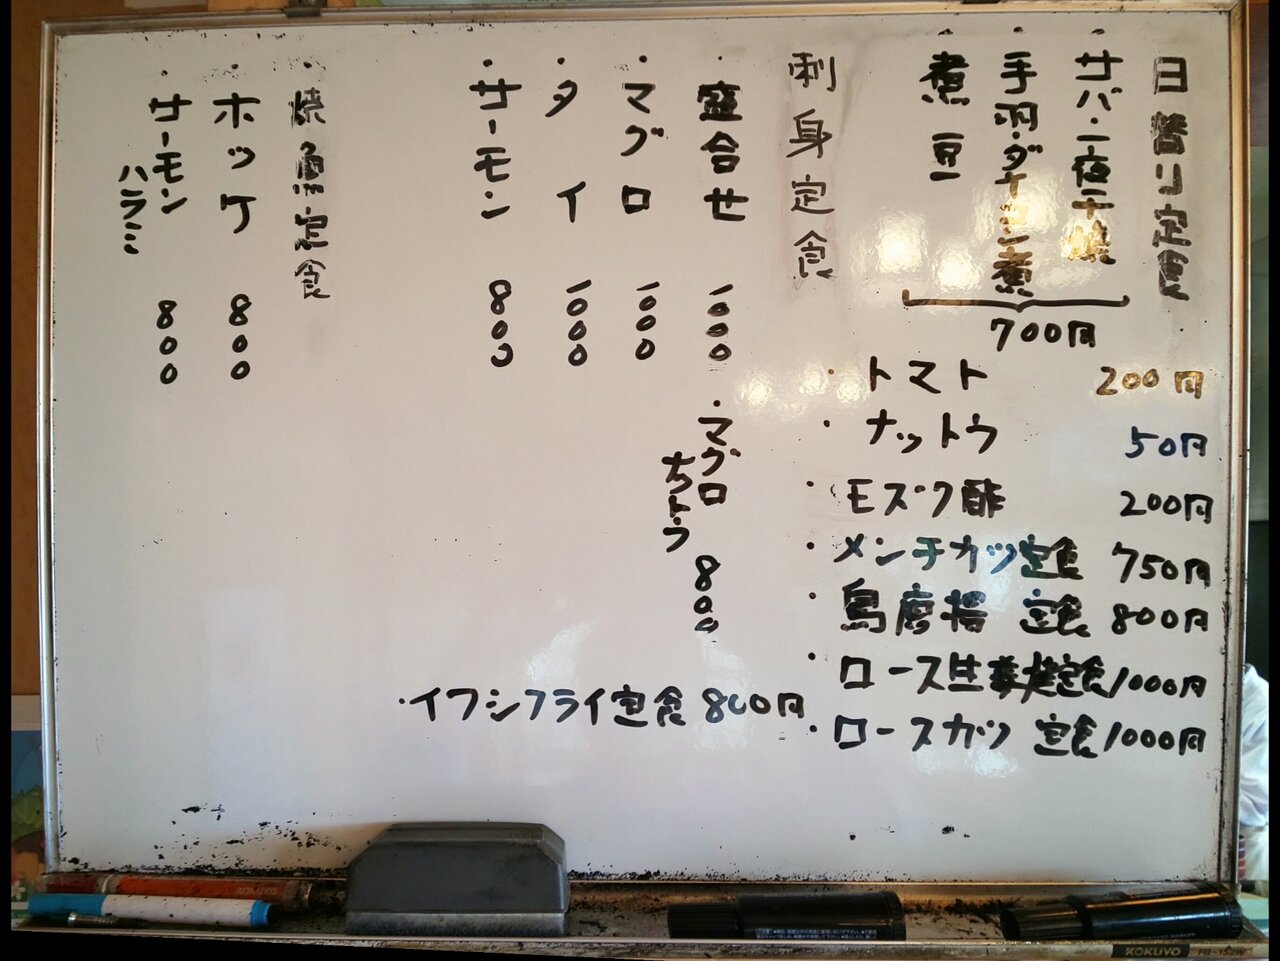 日替り定食
・サバ・一夜干焼
・手羽・ダイコン煮
・煮豆
700円
刺身定食
・盛合せ 1000
・マグロ 1000
・タイ 1000
・サーモン 800
・マグロ
ナットウ 800
焼魚定食
・ホッケ 800
・サーモン
ハラミ 800
・トマト 200円
・ナットウ 50円
・モズク酢 200円
・メンチカツ定食 750円
・鳥唐揚 定食 800円
・ロース生姜焼定食 1000円
・ロースカツ 定食 1000円
・イワシフライ定食 800円
KOKUYO
KOKUYO FB-152W